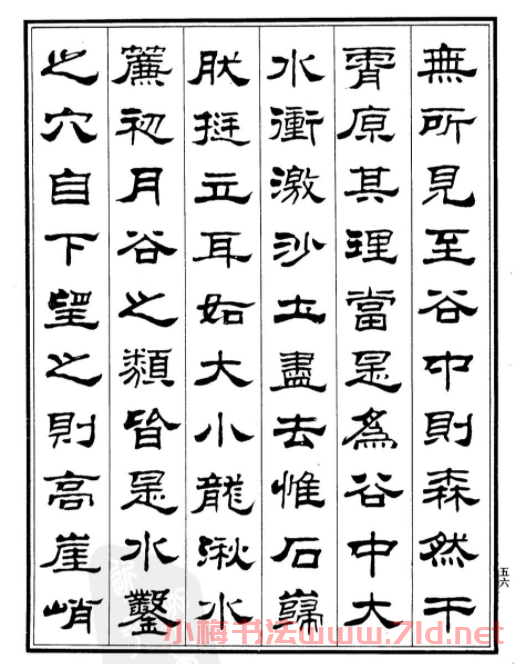 無所見至谷中則森然干
霄原其理當是為谷中大
水衝激沙土盡去惟石巋
肰挺立耳如大小龍湫水
簾初月谷之類皆是水鑿
之穴自下望之則高崖峭
五六
小梅书法www.7ld.net